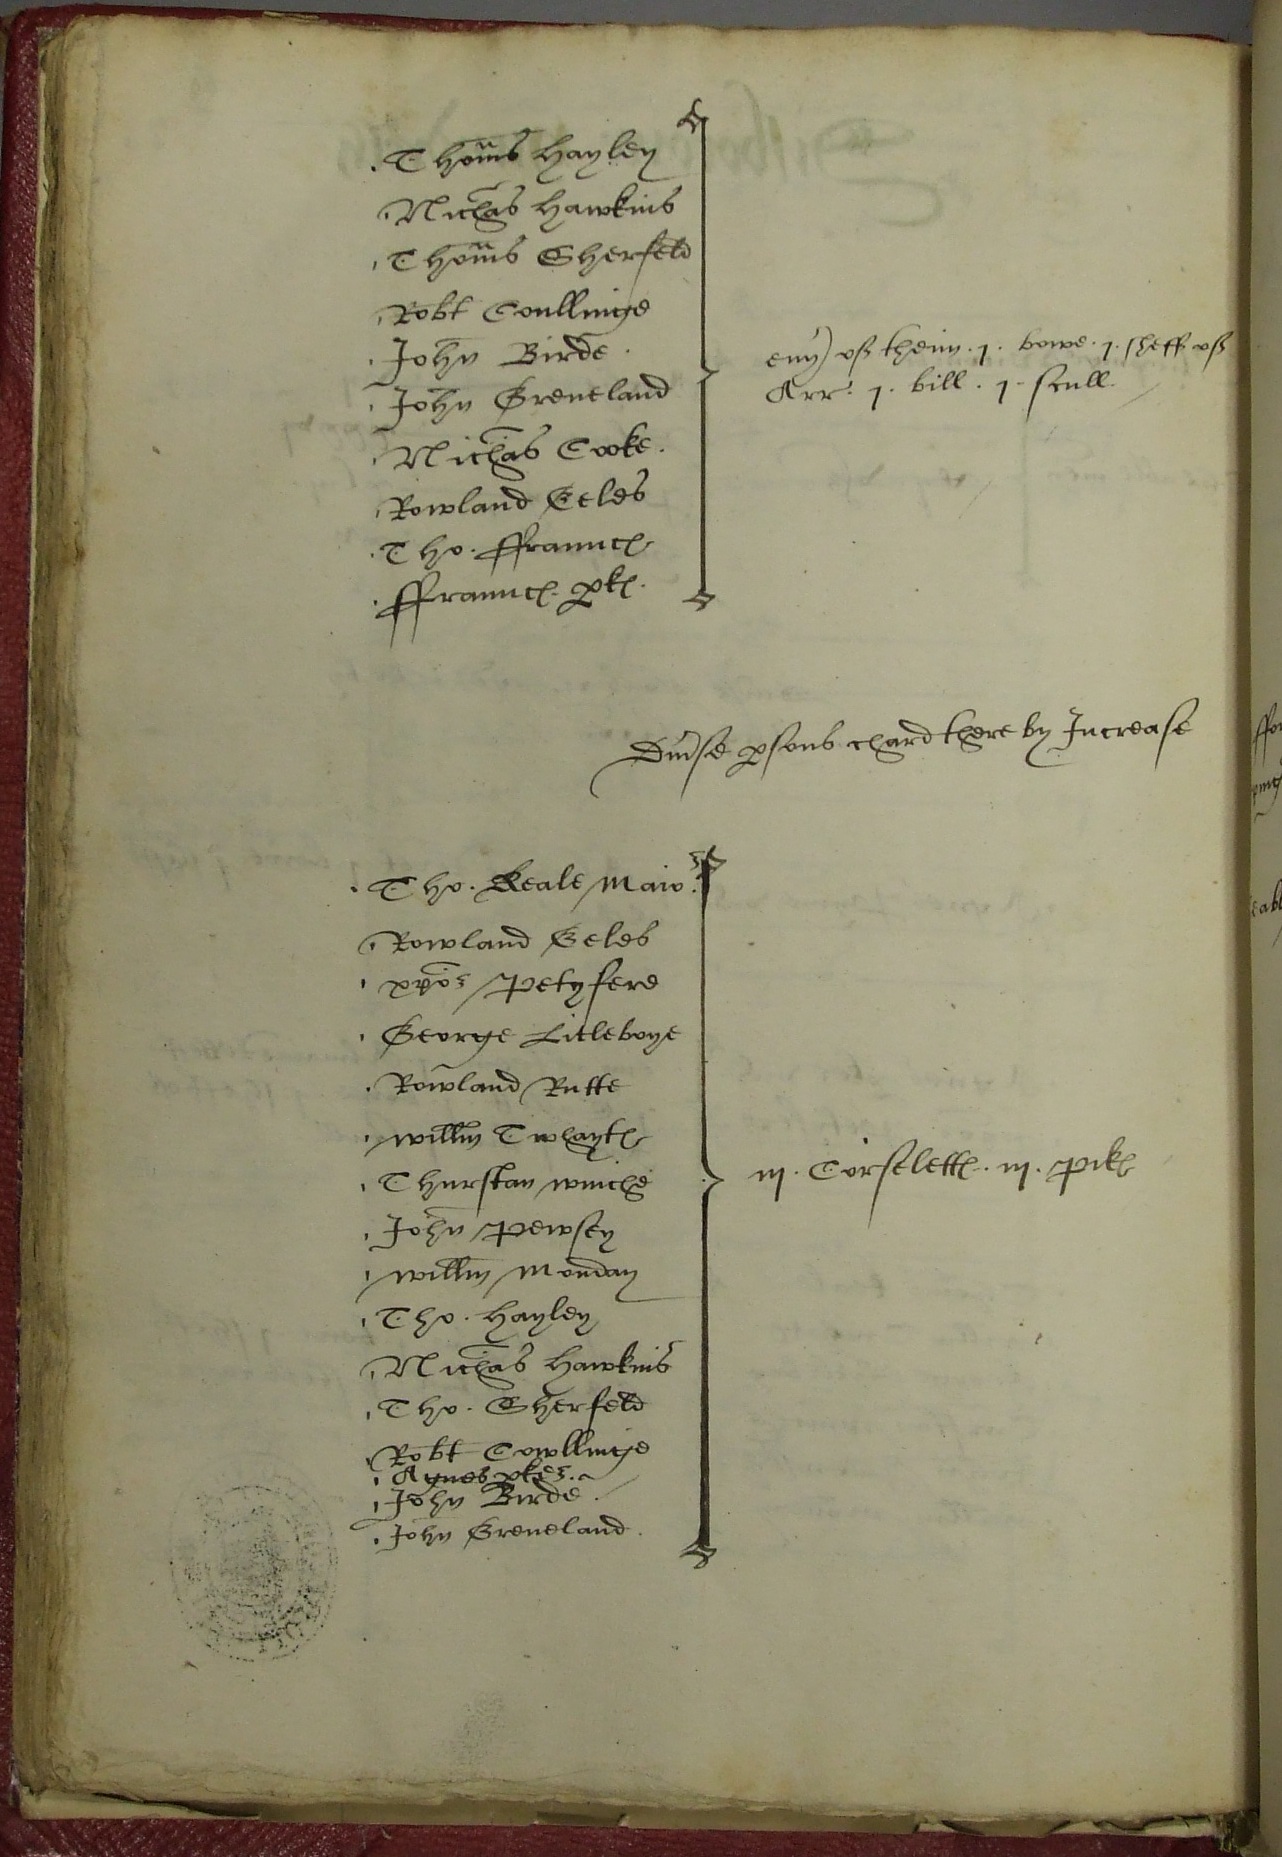 Thoms Hayley
Nichas Hawkins
Thoms Sherfeld
Robt Coullinge
John Birde
John Greneland
Nichas Cooke
Rowland Eeles
Tho. ffraunc
ffraunc pk
eny of theim .j. bowe .j. sheff of
Arr. j. bill. j. scull
Divse psons chard there by Increase
Tho. Keale Maior
Rowland Eeles
xpoz Petyfere
George Litleboye
Rowland Rutte
Willm Twhayt
Thurstan Winche
John Pewsey
Willm Monday
Tho. Hayley
Nichas Hawkins
Tho. Sherfeld
Robt Cowllinge
Agnes pkes
John Birde
John Greneland
iij. Corselett. iij. Pik